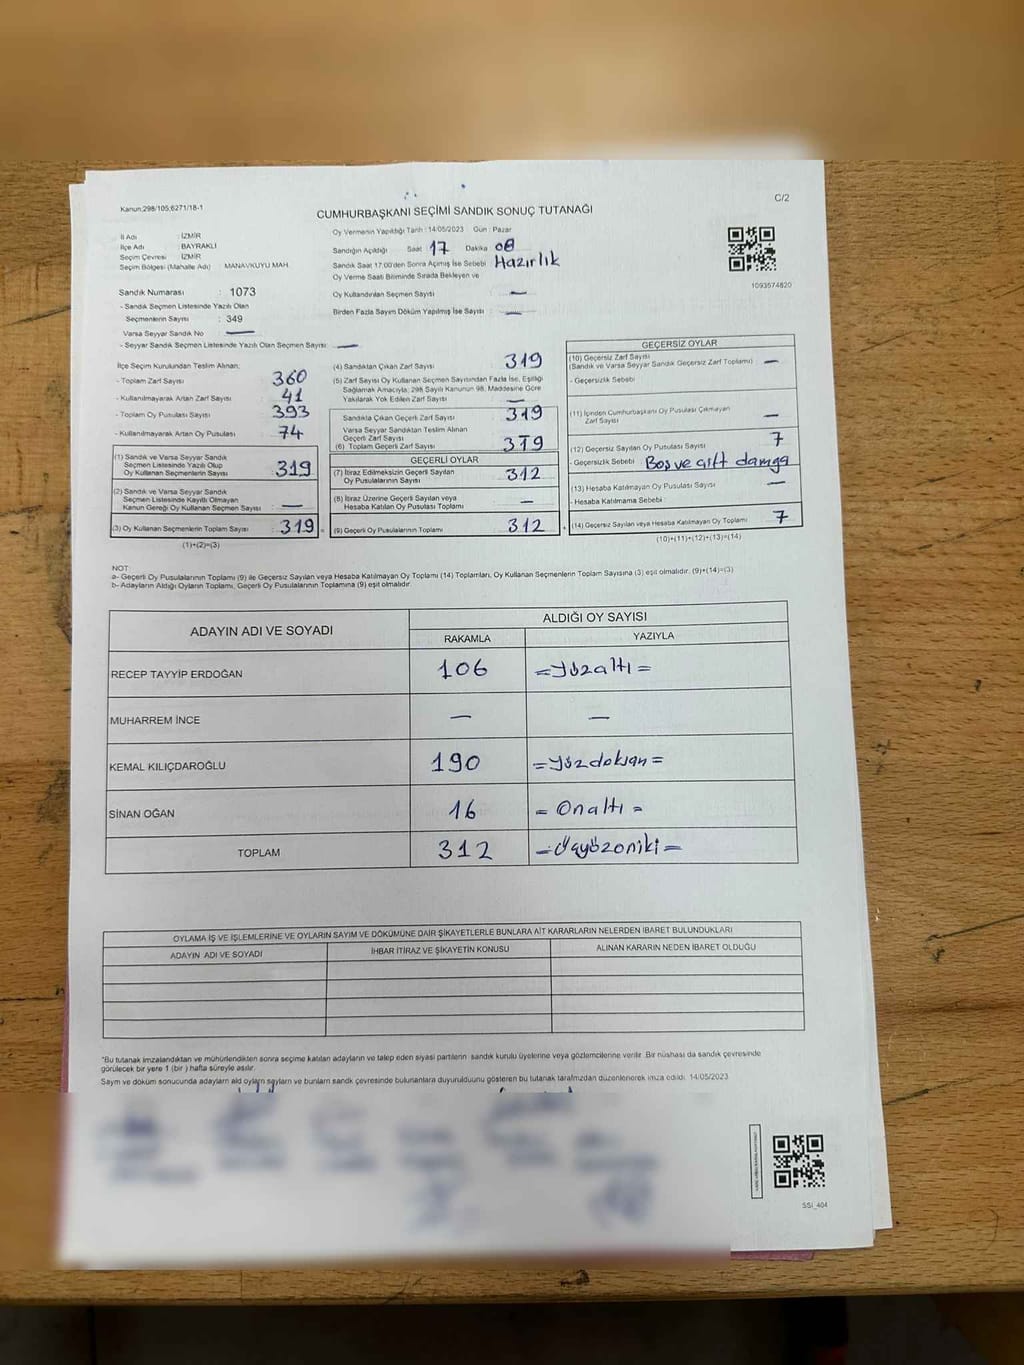 Kanun:298/105;6271/18-1
C/2
CUMHURBAŞKANI SEÇİMİ SANDIK SONUÇ TUTANAĞI
İl Adı : İZMİR
İlçe Adı : BAYRAKLI
Seçim Çevresi : İZMİR
Seçim Bölgesi (Mahalle Adı) MANAVKUYU MAH.
Oy Vermenin Yapıldığı Tarih :14/05/2023 Gün : Pazar
Sandığın Açıldığı Saat 17 Dakika 08
Sandık Saat 17:00'den Sonra Açımış İse Sebebi Hazırlık
Oy Verme Saati Bitiminde Sırada Bekleyen ve
Oy Kullandırılan Seçmen Sayısı : —
Birden Fazla Sayım Döküm Yapılmış İse Sayısı : —
1093674820
Sandık Numarası : 1073
- Sandık Seçmen Listesinde Yazılı Olan
Seçmenlerin Sayısı : 349
Varsa Seyyar Sandık No —
- Seyyar Sandık Seçmen Listesinde Yazılı Olan Seçmen Sayısı: —
İlçe Seçim Kurulundan Teslim Alınan;
- Toplam Zarf Sayısı : 360
- Kullanılmayarak Artan Zarf Sayısı : 41
- Toplam Oy Pusulası Sayısı : 393
- Kullanılmayarak Artan Oy Pusulası : 74
(1) Sandık ve Varsa Seyyar Sandık
Seçmen Listesinde Yazılı Olup
Oy Kullanan Seçmenlerin Sayısı : 319
(2) Sandık ve Varsa Seyyar Sandık
Seçmen Listesinde Kayıtlı Olmayan
Kanun Gereği Oy Kullanan Seçmen Sayısı : —
(3) Oy Kullanan Seçmenlerin Toplam Sayısı : 319
(1)+(2)=(3)
(4) Sandıktan Çıkan Zarf Sayısı : 319
(5) Zarf Sayısı Oy Kullanan Seçmen Sayısından Fazla İse, Eşitliği
Sağlamak Amacıyla; 298 Sayılı Kanunun 98. Maddesine Göre
Yakılarak Yok Edilen Zarf Sayısı :
Sandıkta Çıkan Geçerli Zarf Sayısı : 319
Varsa Seyyar Sandıktan Teslim Alınan
Geçerli Zarf Sayısı : —
(6) Toplam Geçerli Zarf Sayısı : 319
GEÇERLİ OYLAR
(7) İtiraz Edilmeksizin Geçerli Sayılan
Oy Pusulalarının Sayısı : 312
(8) İtiraz Üzerine Geçerli Sayılan veya
Hesaba Katılan Oy Pusulası Toplamı : —
(9) Geçerli Oy Pusulalarının Toplamı : 312
GEÇERSİZ OYLAR
(10) Geçersiz Zarf Sayısı
(Sandık ve Varsa Seyyar Sandık Geçersiz Zarf Toplamı) : —
- Geçersizlik Sebebi :
(11) İçinden Cumhurbaşkanı Oy Pusulası Çıkmayan
Zarf Sayısı : —
(12) Geçersiz Sayılan Oy Pusulası Sayısı : 7
- Geçersizlik Sebebi : Boş ve çift damga
(13) Hesaba Katılmayan Oy Pusulası Sayısı : —
- Hesaba Katılmama Sebebi :
(14) Geçersiz Sayılan veya Hesaba Katılmayan Oy Toplamı : 7
(10)+(11)+(12)+(13)=(14)
NOT:
a- Geçerli Oy Pusulalarının Toplamı (9) ile Geçersiz Sayılan veya Hesaba Katılmayan Oy Toplamı (14) Toplamları, Oy Kullanan Seçmenlerin Toplam Sayısına (3) eşit olmalıdır. (9)+(14)=(3)
b- Adayların Aldığı Oyların Toplamı, Geçerli Oy Pusulalarının Toplamına (9) eşit olmalıdır.
ADAYIN ADI VE SOYADI
ALDIĞI OY SAYISI
RAKAMLA YAZIYLA
RECEP TAYYİP ERDOĞAN 106 =Yüzaltı=
MUHARREM İNCE — —
KEMAL KILIÇDAROĞLU 190 =Yüzdoksan=
SİNAN OĞAN 16 = Onaltı =
TOPLAM 312 =Üçyüzoniki=
OYLAMA İŞ VE İŞLEMLERİNE VE OYLARIN SAYIM VE DÖKÜMÜNE DAİR ŞİKAYETLERLE BUNLARA AİT KARARLARIN NELERDEN İBARET BULUNDUKLARI
ADAYIN ADI VE SOYADI İHBAR İTİRAZ VE ŞİKAYETİN KONUSU ALINAN KARARIN NEDEN İBARET OLDUĞU
*Bu tutanak imzalandıktan ve mühürlendikten sonra seçime katılan adayların ve talep eden siyasi partilerin sandık kurulu üyelerine veya gözlemcilerine verilir. Bir nüshası da sandık çevresinde
görülecek bir yere 1 (bir ) hafta süreyle asılır.
Sayım ve döküm sonucunda adayların ald oyların sayıları ve bunların sandık çevresinde bulunanlara duyurulduunu gösteren bu tutanak tarafımzdan düzenlenerek imza edildi. 14/05/2023
SSİ_404